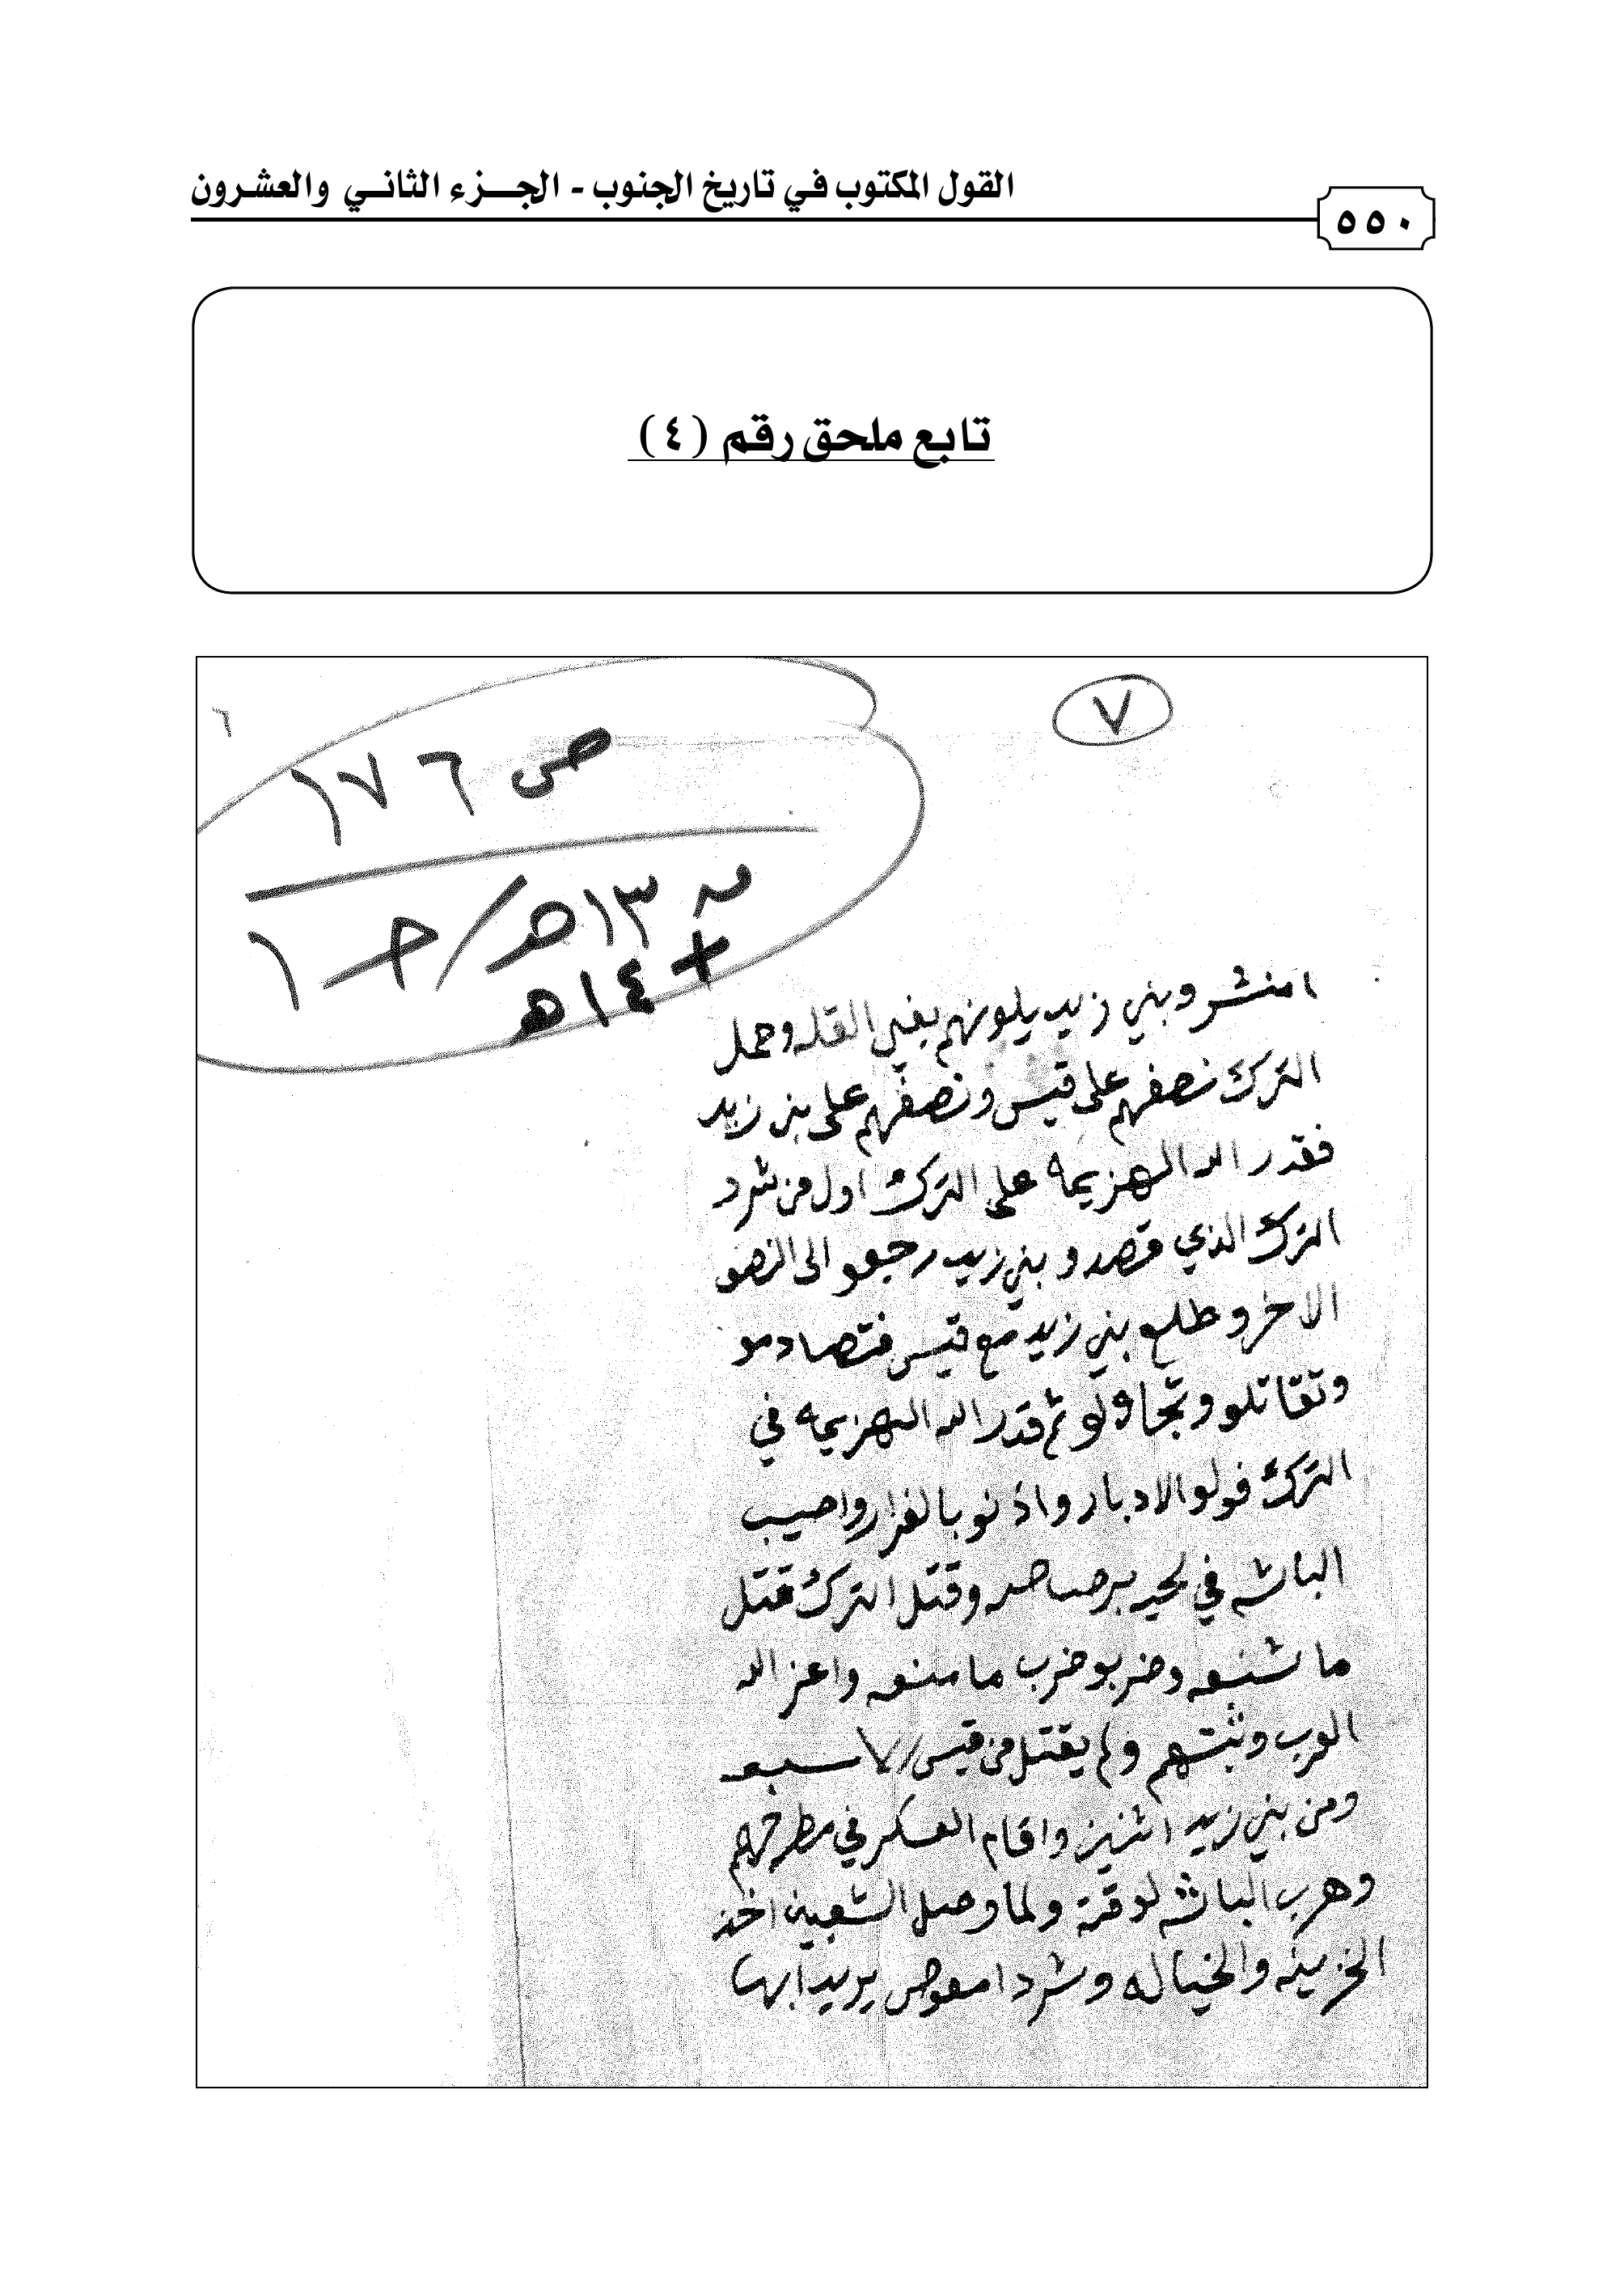 القول المكتوب في تاريخ الجنوب - الجـزء الثانـي والعشـرون
٥٥٠
تابع ملحق رقم (٤)
٧
٦
ص ١٧٦
ق ١٣هـ/ جـ ١
+ ١٤هـ
امنشر وبني زيد يلونهم بغبي القله وحمل
الترك نصفهم على قيس ونصفهم على بني زيد
فقدر الله الهزيمه على الترك اول من شرد
الترك الذي قصده وبني زيد رجعو الى النصو
الاخر وطلع بني زيد مع قيس فتصادمو
وتقاتلو وتجاولو ثم قدر الله الهزيمه في
الترك فولو الادبار واذنو بالفرار واصيب
الباشه في لحيه برصاصه وقتل الترك قتل
ما شنعه وضربو ضرب ما منعه واعز الله
العرب وثبتهم ولم يقتل من قيس /٧ سبعه
ومن بني زيد اثنين واقام العسكر في مطرحهم
وهرب الباشه لوقته ولما وصل الشعبين اخذ
الخزينه والخياله وشرد امعوص يريد ابها